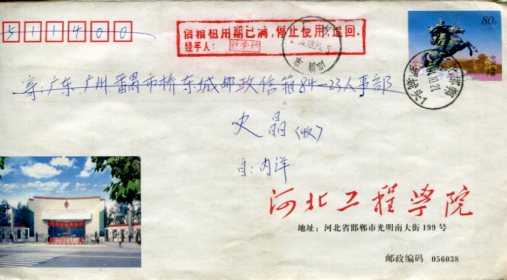 511400
信箱租用期已满,停止使用,退回.
经手人:
80分
寄:广东.广州番禺市桥东城邮政信箱84-23人事部
史晶(收)
自:内详
河北工程学院
地址:河北省邯郸市光明南大街199号
邮政编码 056038